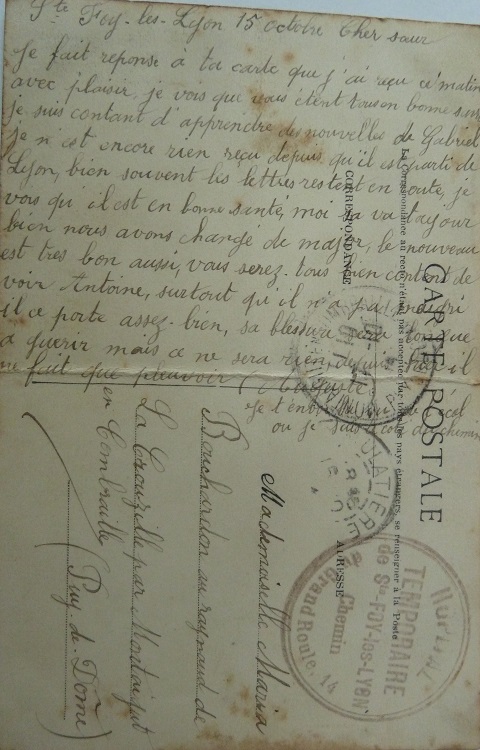 Ste Foy-les-Lyon 15 octobre Cher sœur
Je fait reponse a ta carte que j'ai reçu ce matin
avec plaisir, je vois que vous étent tous en bonne santé
je suis contant d'apprendre des nouvelles de Gabriel
je n'est encore rien reçu depuis qu'il est parti de
Lyon, bien souvent les lettres restent en route, je
vois qu'il est en bonne santé, moi sa va toujour
bien nous avons changé de major, le nouveau
est tres bon aussi, vous serez tous bien content de
voir Antoine, surtout qu'il n'a pas maigri
il ce porte assez bien, sa blessure sera longue
a querir mais ce ne sera rien, il
ne fait que pleuvoir
Je t'envoi
ou je suis du chemin
CARTE POSTALE
La correspondance au recto n'étant pas acceptée par tous les pays étrangers, se renseigner à la Poste
CORRESPONDANCE
ADRESSE
Mademoiselle Maria
Bouchardon au raynaud de
La Crouzille par Montaigut
en Combraille
(Puy-de-Dôme)
TEMPORAIRE
de Ste-FOY-les-LYON
Chemin
de Grand Route, 14